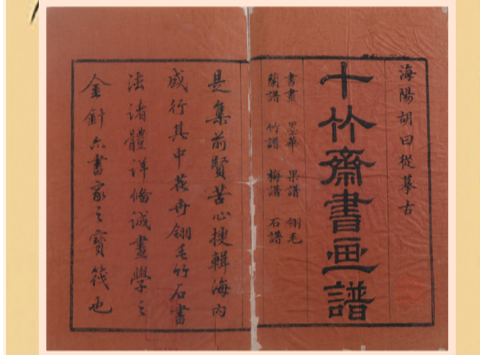 海陽胡曰從摹古
十竹齋書画譜
書畫 墨華 果譜 翎毛
蘭譜 竹譜 梅譜 石譜
是集前賢苦心搜輯海内
成行其中花卉翎毛竹石書
法諸體詳備誠畫學之
金針六書家之寶筏也